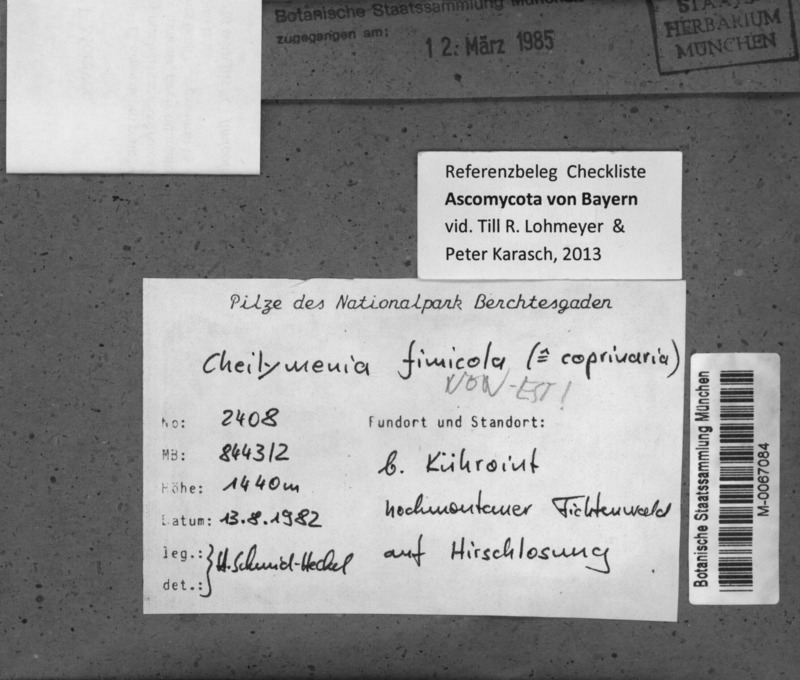 Botanische Staatssammlung München
zugegangen am:
12. März 1985
STAATS
HERBARIUM
MÜNCHEN
Referenzbeleg Checkliste
Ascomycota von Bayern
vid. Till R. Lohmeyer &
Peter Karasch, 2013
Pilze des Nationalpark Berchtesgaden
Cheilymenia fimicola (≙ coprinaria)
NON-EST!
No: 2408
MB: 8443/2
Höhe: 1440m
Datum: 13.8.1982
leg.: } H. Schmid-Heckel
det.:
Fundort und Standort:
b. Kühroint
hochmontaner Fichtenwald
auf Hirschlosung
Botanische Staatssammlung München
M-0067084